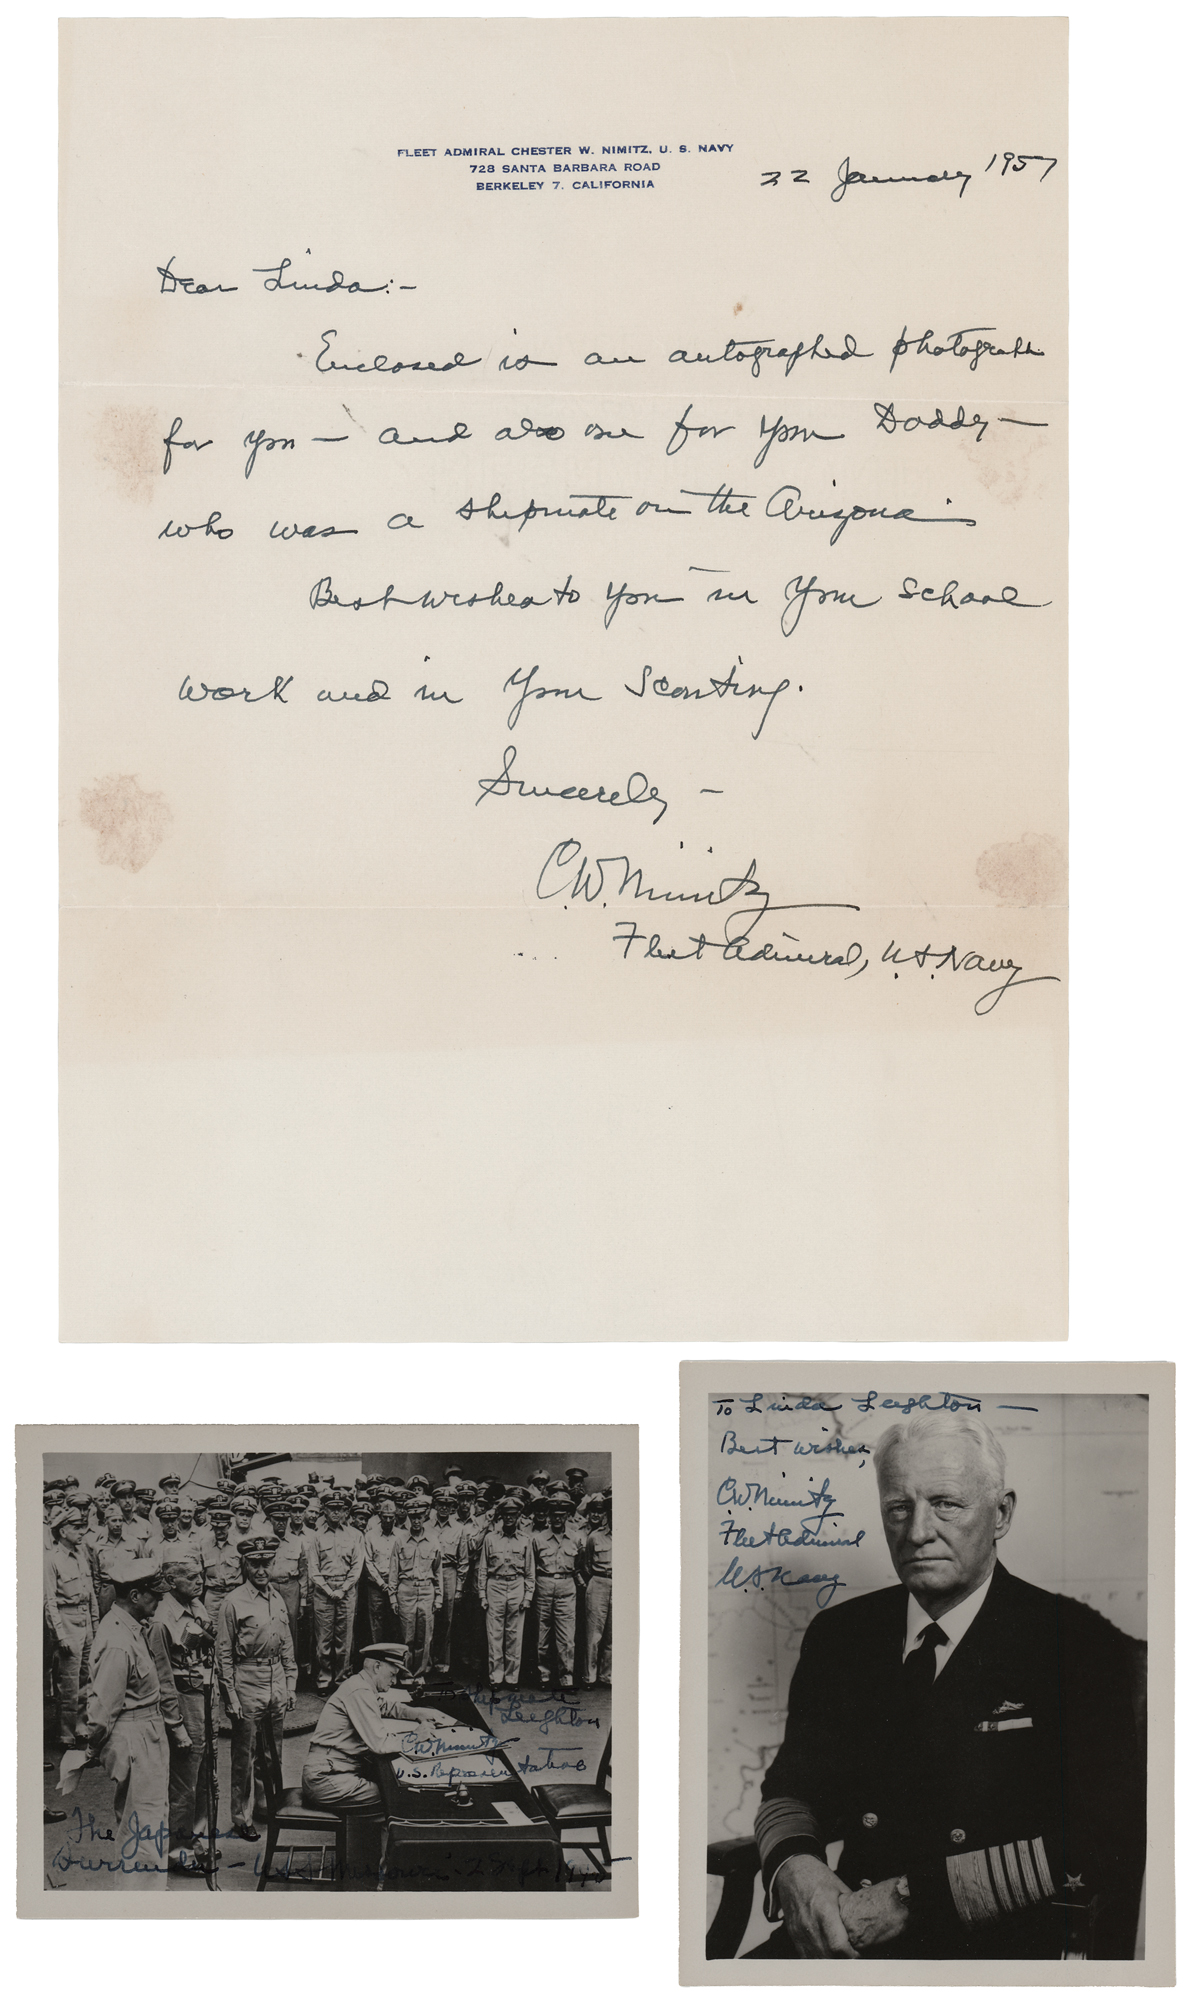 FLEET ADMIRAL CHESTER W. NIMITZ, U. S. NAVY
728 SANTA BARBARA ROAD
BERKELEY 7, CALIFORNIA
22 January 1957
Dear Linda:-
Enclosed is an autographed photograph
for you — and also one for your Daddy —
who was a shipmate on the Arizona.
Best wishes to you in your school
work and in your Scouting.
Sincerely —
C.W. Nimitz
Fleet Admiral, U.S. Navy
To Shipmate
Leighton
C.W. Nimitz
U.S. Representative
The Japanese
Surrender — USS Missouri - 2 Sept 1945
To Linda Leighton —
Best wishes,
C.W. Nimitz
Fleet Admiral
U.S. Navy